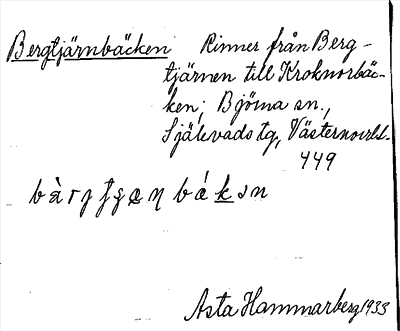 Bergtjärnbäcken Rinner från Berg-
tjärnen till Kroknorbäc-
ken; Björna sn.,
Själevads tg, Västernorrl.
449
Asta Hammarberg 1933